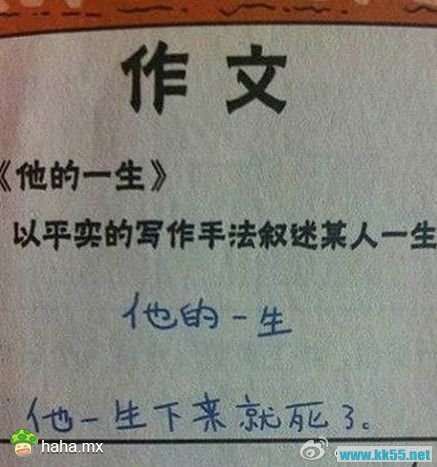 作文
《他的一生》
以平实的写作手法叙述某人一生
他的一生
他一生下来就死了。
haha.mx
www.kk55.net